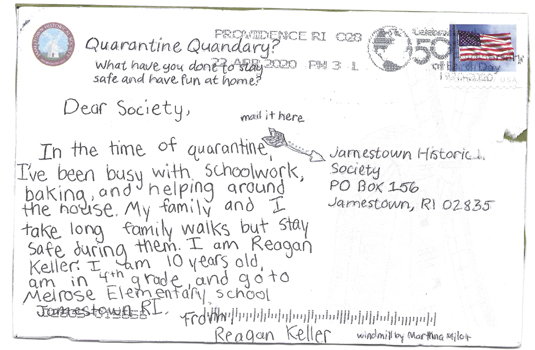 PROVIDENCE RI 028
22 APR 2020 PM 3 L
Quarantine Quandary?
What have you done to stay
safe and have fun at home?
Dear Society,
mail it here
In the time of quarantine,
I've been busy with schoolwork,
baking, and helping around
the house. My family and I
take long family walks but stay
safe during them. I am Reagan
Keller. I am 10 years old,
am in 4th grade, and go to
Melrose Elementary school
Jamestown RI.
From:
Reagan Keller
Jamestown Historical
Society
PO Box 156
Jamestown, RI 02835
windmill by Martha Milot